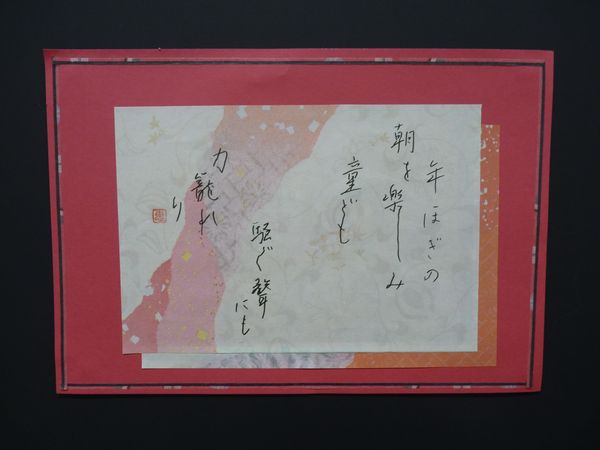 年ほぎの
朝を楽しみ
童ども
騒ぐ聲
にも
力籠れ
り